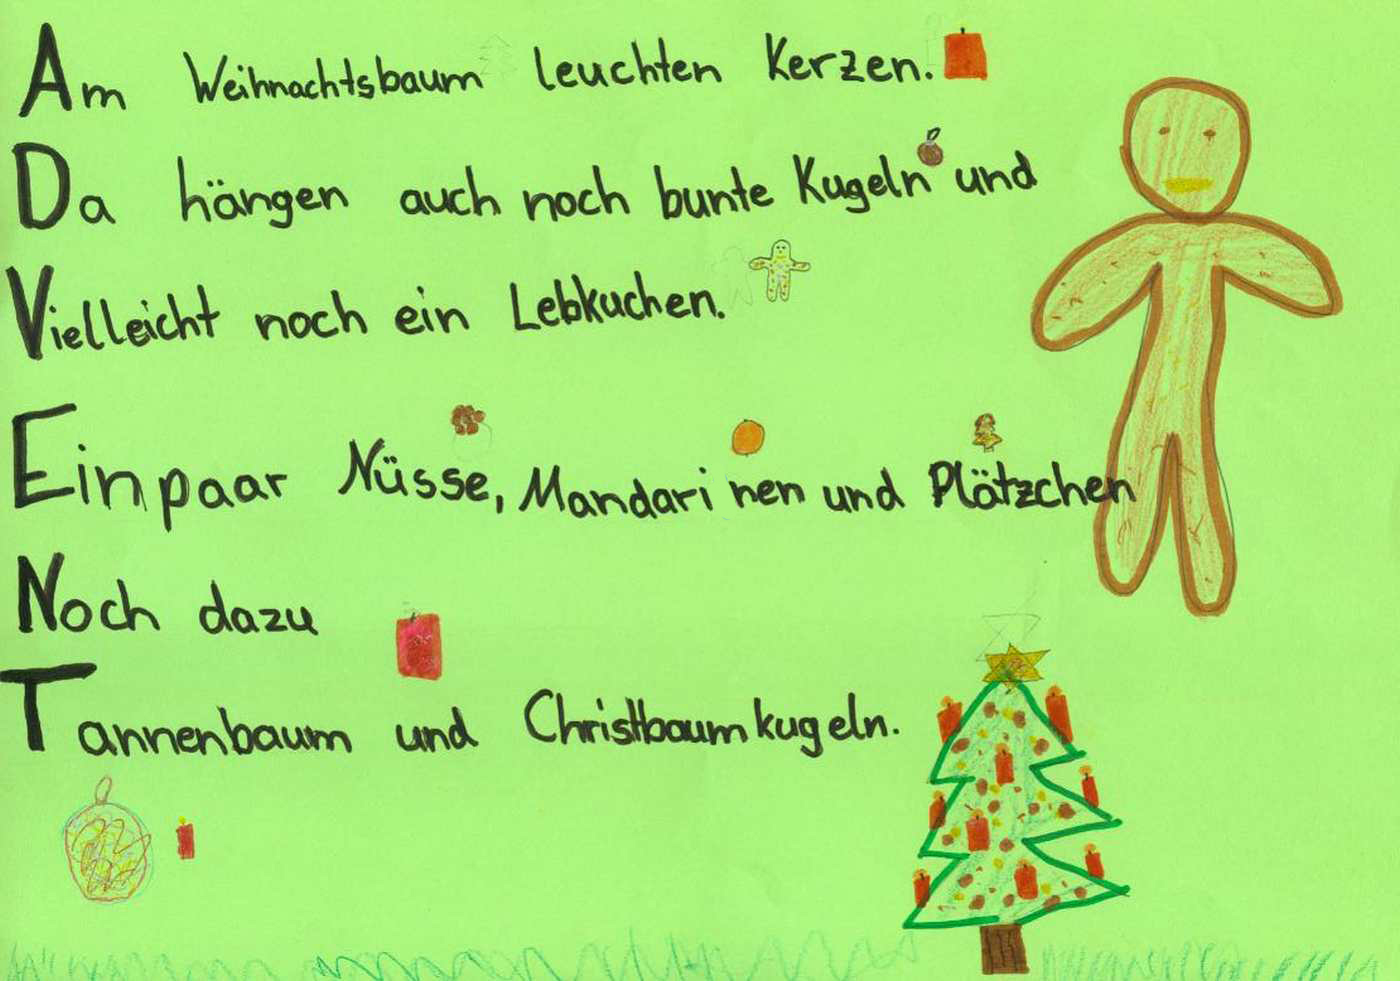 Am Weihnachtsbaum leuchten Kerzen.
Da hängen auch noch bunte Kugeln und
Vielleicht noch ein Lebkuchen.
Ein paar Nüsse, Mandarinen und Plätzchen
Noch dazu
Tannenbaum und Christbaumkugeln.